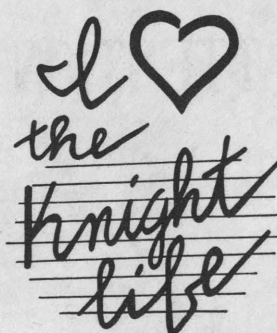 I ♡
the
Knight
life